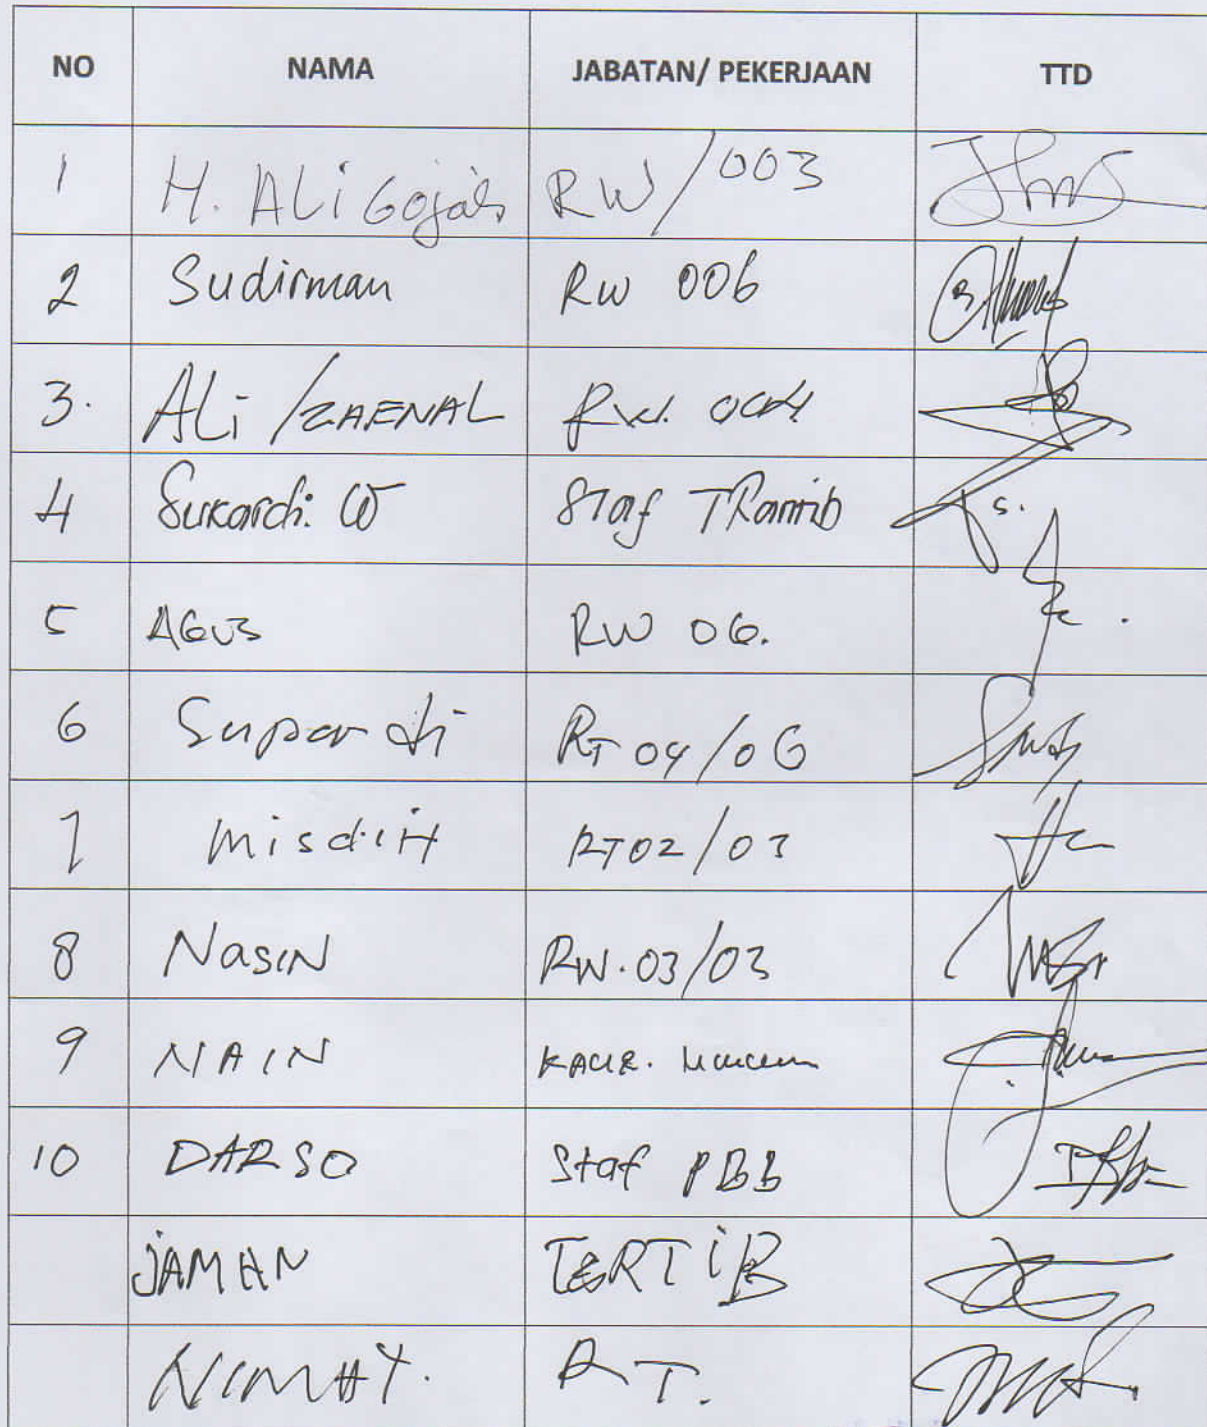 NO NAMA JABATAN/ PEKERJAAN TTD
1 H. ALi Gojali RW/003
2 Sudirman RW 006
3. ALi /ZAENAL RW. 004
4 Sukardi. W Staf TRantib
5 AGUS RW 06.
6 Supardi RT 04/06
7 MisdiH RT02/03
8 NasiN RW.03/03
9 NAIN KAUR. Umum
10 DARSO Staf PBB
JAMAN TERTiB
NIMAT. RT.